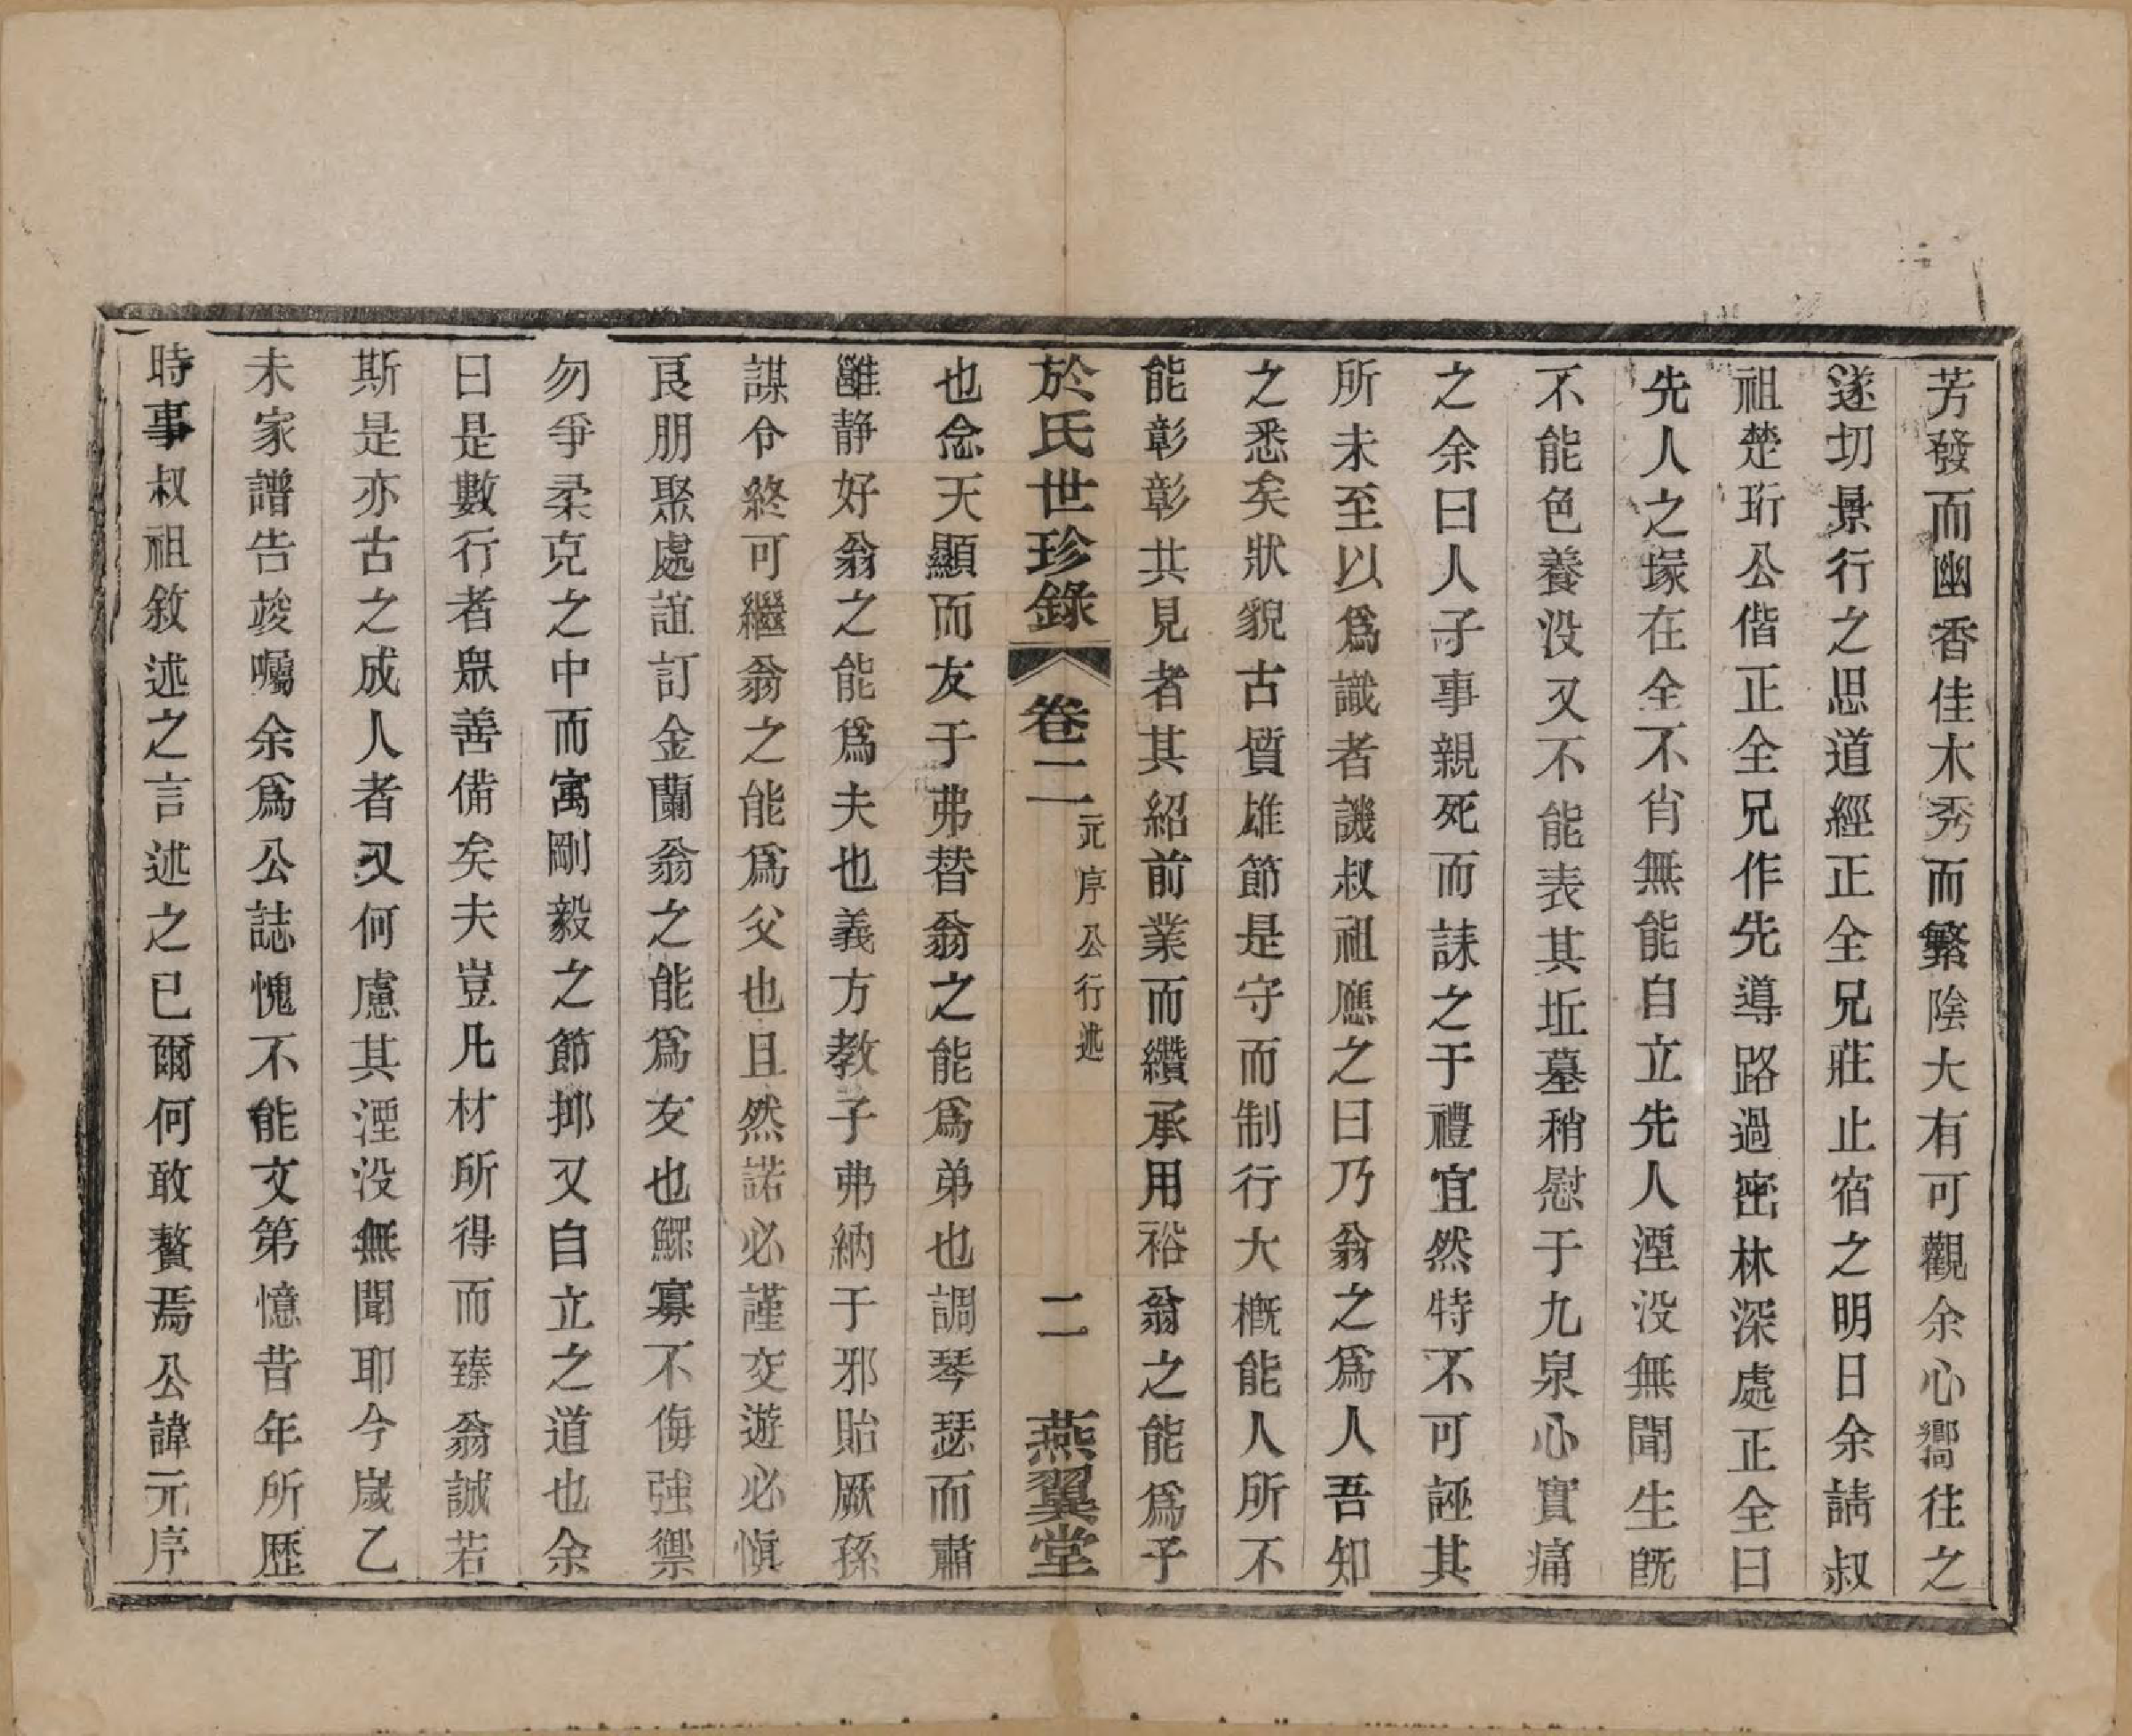 芳發而幽香佳木秀而繁陰大有可觀余心嚮往之
遂切景行之思道經正全兄莊止宿之明日余請叔
祖楚珩公偕正全兄作先導路過密林深處正全曰
先人之塚在全不肖無能自立先人湮没無聞生旣
不能色養没又不能表其坵墓稍慰于九泉心實痛
之余曰人子事親死而誄之于禮宜然特不可誣其
所未至以爲識者譏叔祖應之曰乃翁之爲人吾知
之悉矣狀貌古質雄節是守而制行大槪能人所不
能彰彰共見者其紹前業而纘承用裕翁之能爲子
於氏世珍錄 卷二 元序公行述 二 燕翼堂
也念天顯而友于弗替翁之能爲弟也調琴瑟而肅
雝静好翁之能爲夫也義方教子弗納于邪貽厥孫
謀令終可繼翁之能爲父也且然諾必謹交遊必愼
良朋聚處誼訂金蘭翁之能爲友也鰥寡不侮強禦
勿爭柔克之中而寓剛毅之節抑又自立之道也余
曰是數行者衆善備矣夫豈凡材所得而臻翁誠若
斯是亦古之成人者又何慮其湮没無聞耶今歲乙
未家譜告竣囑余爲公誌愧不能文第憶昔年所歷
時事叔祖敘述之言述之已爾何敢贅焉公諱元序